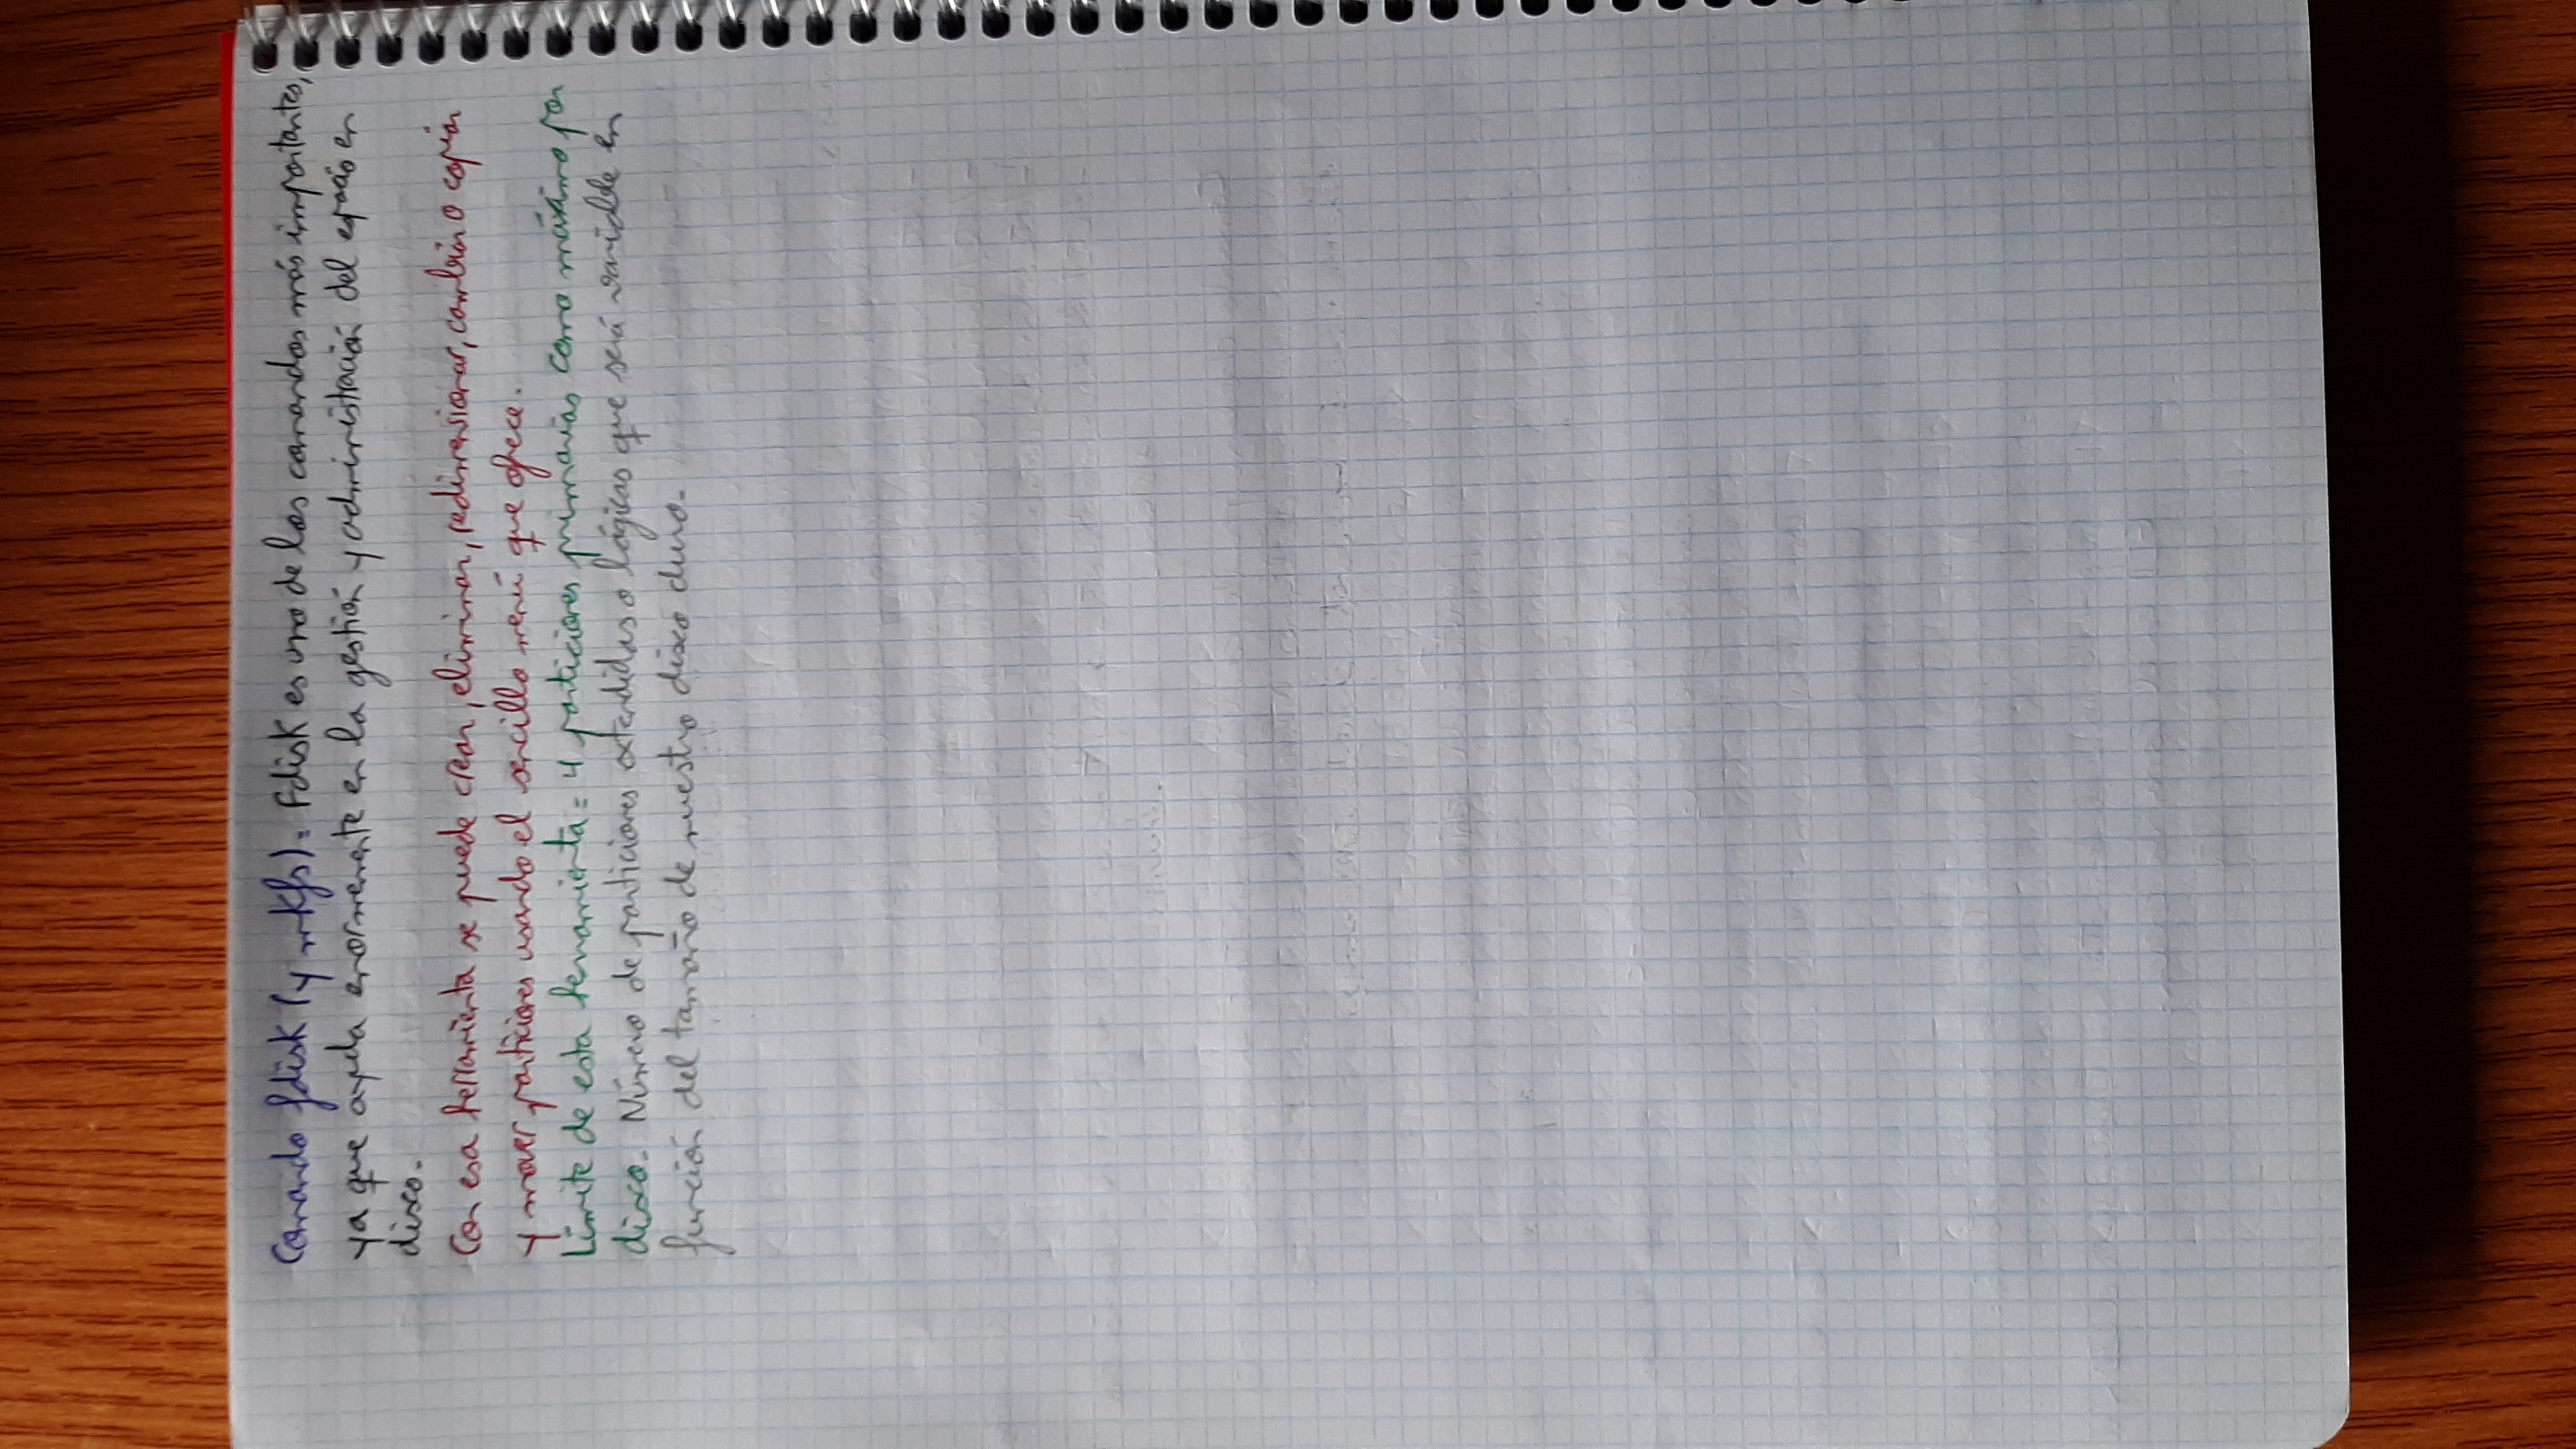 Comando fdisk (y mkfs): Fdisk es uno de los comandos más importantes,
ya que ayuda enormemente en la gestión y administración del espacio en
disco.
Con esa herramienta se puede crear, eliminar, redimensionar, cambiar o copiar
y mover particiones usando el sencillo menú que ofrece.
Límite de esta herramienta = 4 particiones primarias como máximo por
disco. Número de particiones extendidas o lógicas que será variable en
función del tamaño de nuestro disco duro.